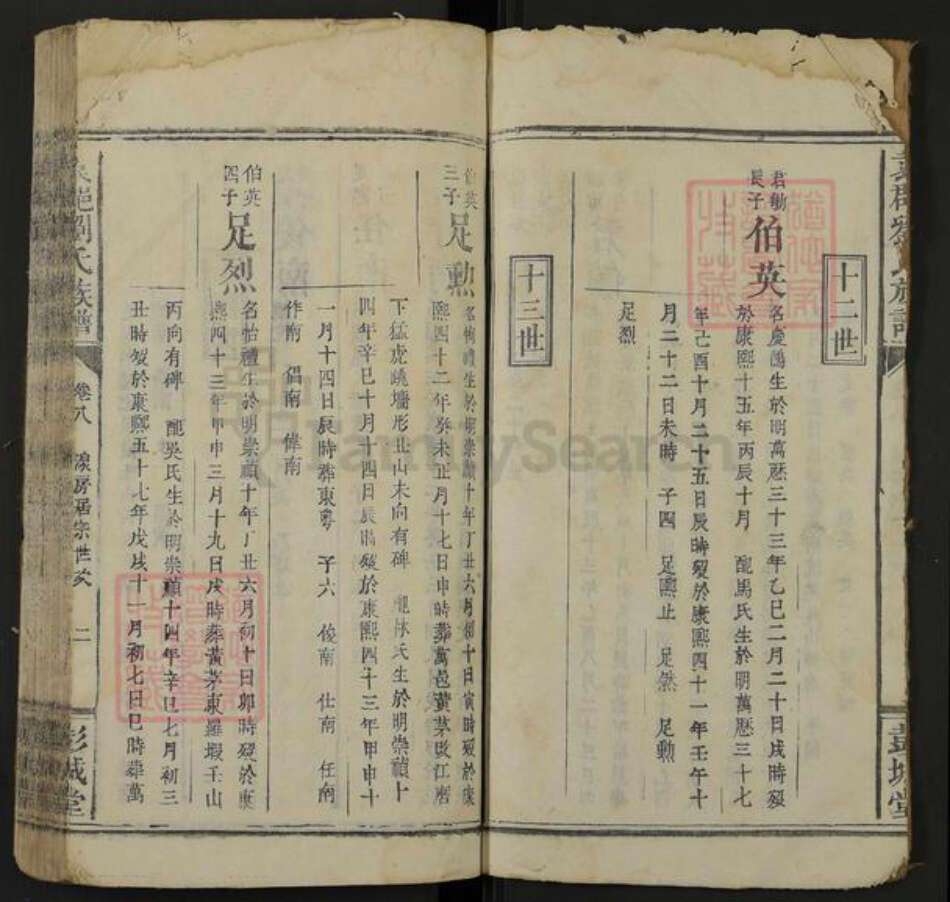 十二世
君勛
長子
伯英
名慶鴻生於明萬歷三十三年乙巳二月二十日戌時歿
於康熙十五年丙辰十月 配馬氏生於明萬歷三十七
年己酉十月二十五日辰時歿於康熙四十一年壬午十
月二十二日未時 子四 足熙止 足然 足勳
足烈
十三世
伯英
三子
足勳
生於明崇禎十年丁丑六月初十日寅時歿於康
熙四十二年癸未正月十七日申時葬萬邑黃茅
下猛虎跳墻形丑山未向有碑 配林氏生於明崇禎十
四年辛巳十月十四日辰時歿於康熙四十三年甲申十
一月十四日辰時葬東粵 子六 俊南 仕南 任南
作南 倡南 偉南
伯英
四子
足烈
名怡禮生於明崇禎十年丁丑六月初十日卯時歿於康
熙四十三年甲申三月十九日戌時葬黃茅東羅壬山
丙向有碑 配吳氏生於明崇禎十四年辛巳七月初三
丑時歿於康熙五十七年戊戌十一月初七日巳時葬萬
邑劉氏族譜
卷八
二
彭城堂
彭城堂
FamilySearch